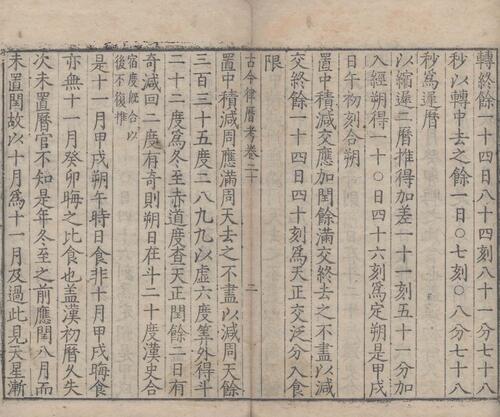 轉終餘一十四日八十四刻八十一分七十八
秒以轉中去之餘一日〇七刻〇八分七十八
秒爲遲曆
以縮遲二曆推得加差一十一刻五十一分加
入經朔得一十〇日四十六刻爲定朔是甲戌
日午初刻合朔
置中積減交應加閏餘滿交終去之不盡以減
交終餘一十四日四十刻爲天正交泛分入食
限
古今律曆考卷二十 二
置中積減周應滿周天去之不盡以減周天餘
三百三十五度二八九九以虛六度筭外得斗
二十二度爲冬至赤道度查天正閏餘二日有
奇減回二度有奇則朔日在斗二十度漢史合
宿度經合以
後不復推
是十一月甲戌朔午時日食非十月甲戌晦食
亦無十一月癸卯晦之比食也盖漢初曆久失
次未置曆官不知是年冬至之前應閏八月而
未置閏故以十月爲十一月及過此見天星漸